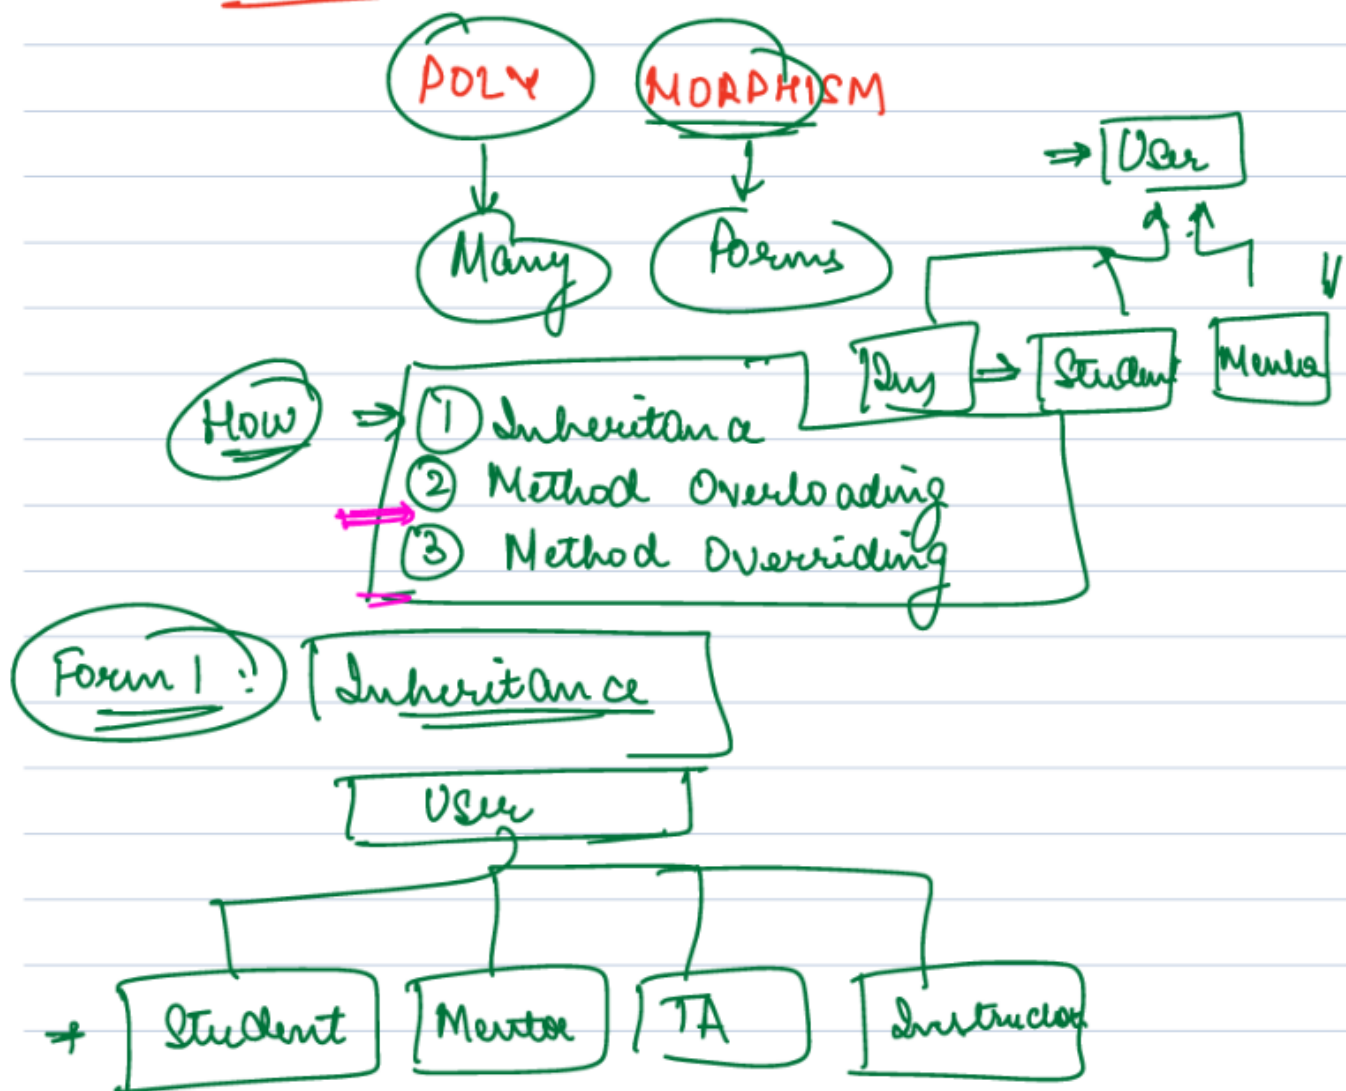 POLY MORPHISM
User
Many Forms
Ins Student Mentor
How
① Inheritance
② Method Overloading
③ Method Overriding
Form 1 : Inheritance
User
Student Mentor TA Instructor